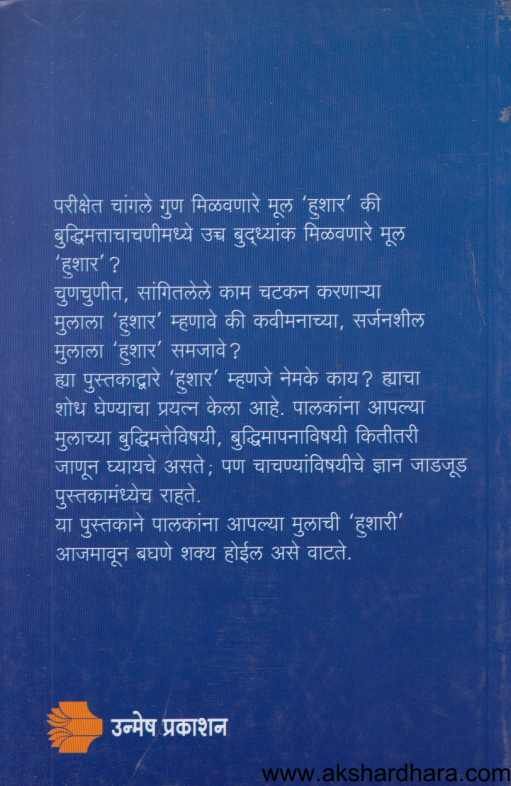 परीक्षेत चांगले गुण मिळवणारे मूल 'हुशार' की
बुद्धिमत्ताचाचणीमध्ये उच्च बुद्ध्यांक मिळवणारे मूल
'हुशार' ?
चुणचुणीत, सांगितलेले काम चटकन करणाऱ्या
मुलाला 'हुशार' म्हणावे की कवीमनाच्या, सर्जनशील
मुलाला 'हुशार' समजावे ?
ह्या पुस्तकाद्वारे 'हुशार' म्हणजे नेमके काय ? ह्याचा
शोध घेण्याचा प्रयत्न केला आहे. पालकांना आपल्या
मुलाच्या बुद्धिमत्तेविषयी, बुद्धिमापनाविषयी कितीतरी
जाणून घ्यायचे असते ; पण चाचण्यांविषयीचे ज्ञान जाडजूड
पुस्तकामंध्येच राहते.
या पुस्तकाने पालकांना आपल्या मुलाची 'हुशारी'
आजमावून बघणे शक्य होईल असे वाटते.
उन्मेष प्रकाशन
www.akshardhara.com